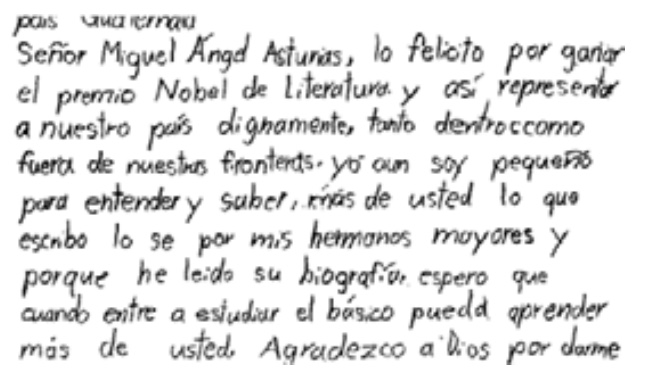 país Guatemala
Señor Miguel Ángel Asturias, lo felicito por ganar
el premio Nobel de Literatura y así representar
a nuestro país dignamente, tanto dentro como
fuera de nuestras fronteras. yo aun soy pequeño
para entender y saber, más de usted lo que
escribo lo se por mis hermanos mayores y
porque he leido su biografía. espero que
cuando entre a estudiar el básico pueda aprender
más de usted. Agradezco a Dios por darme